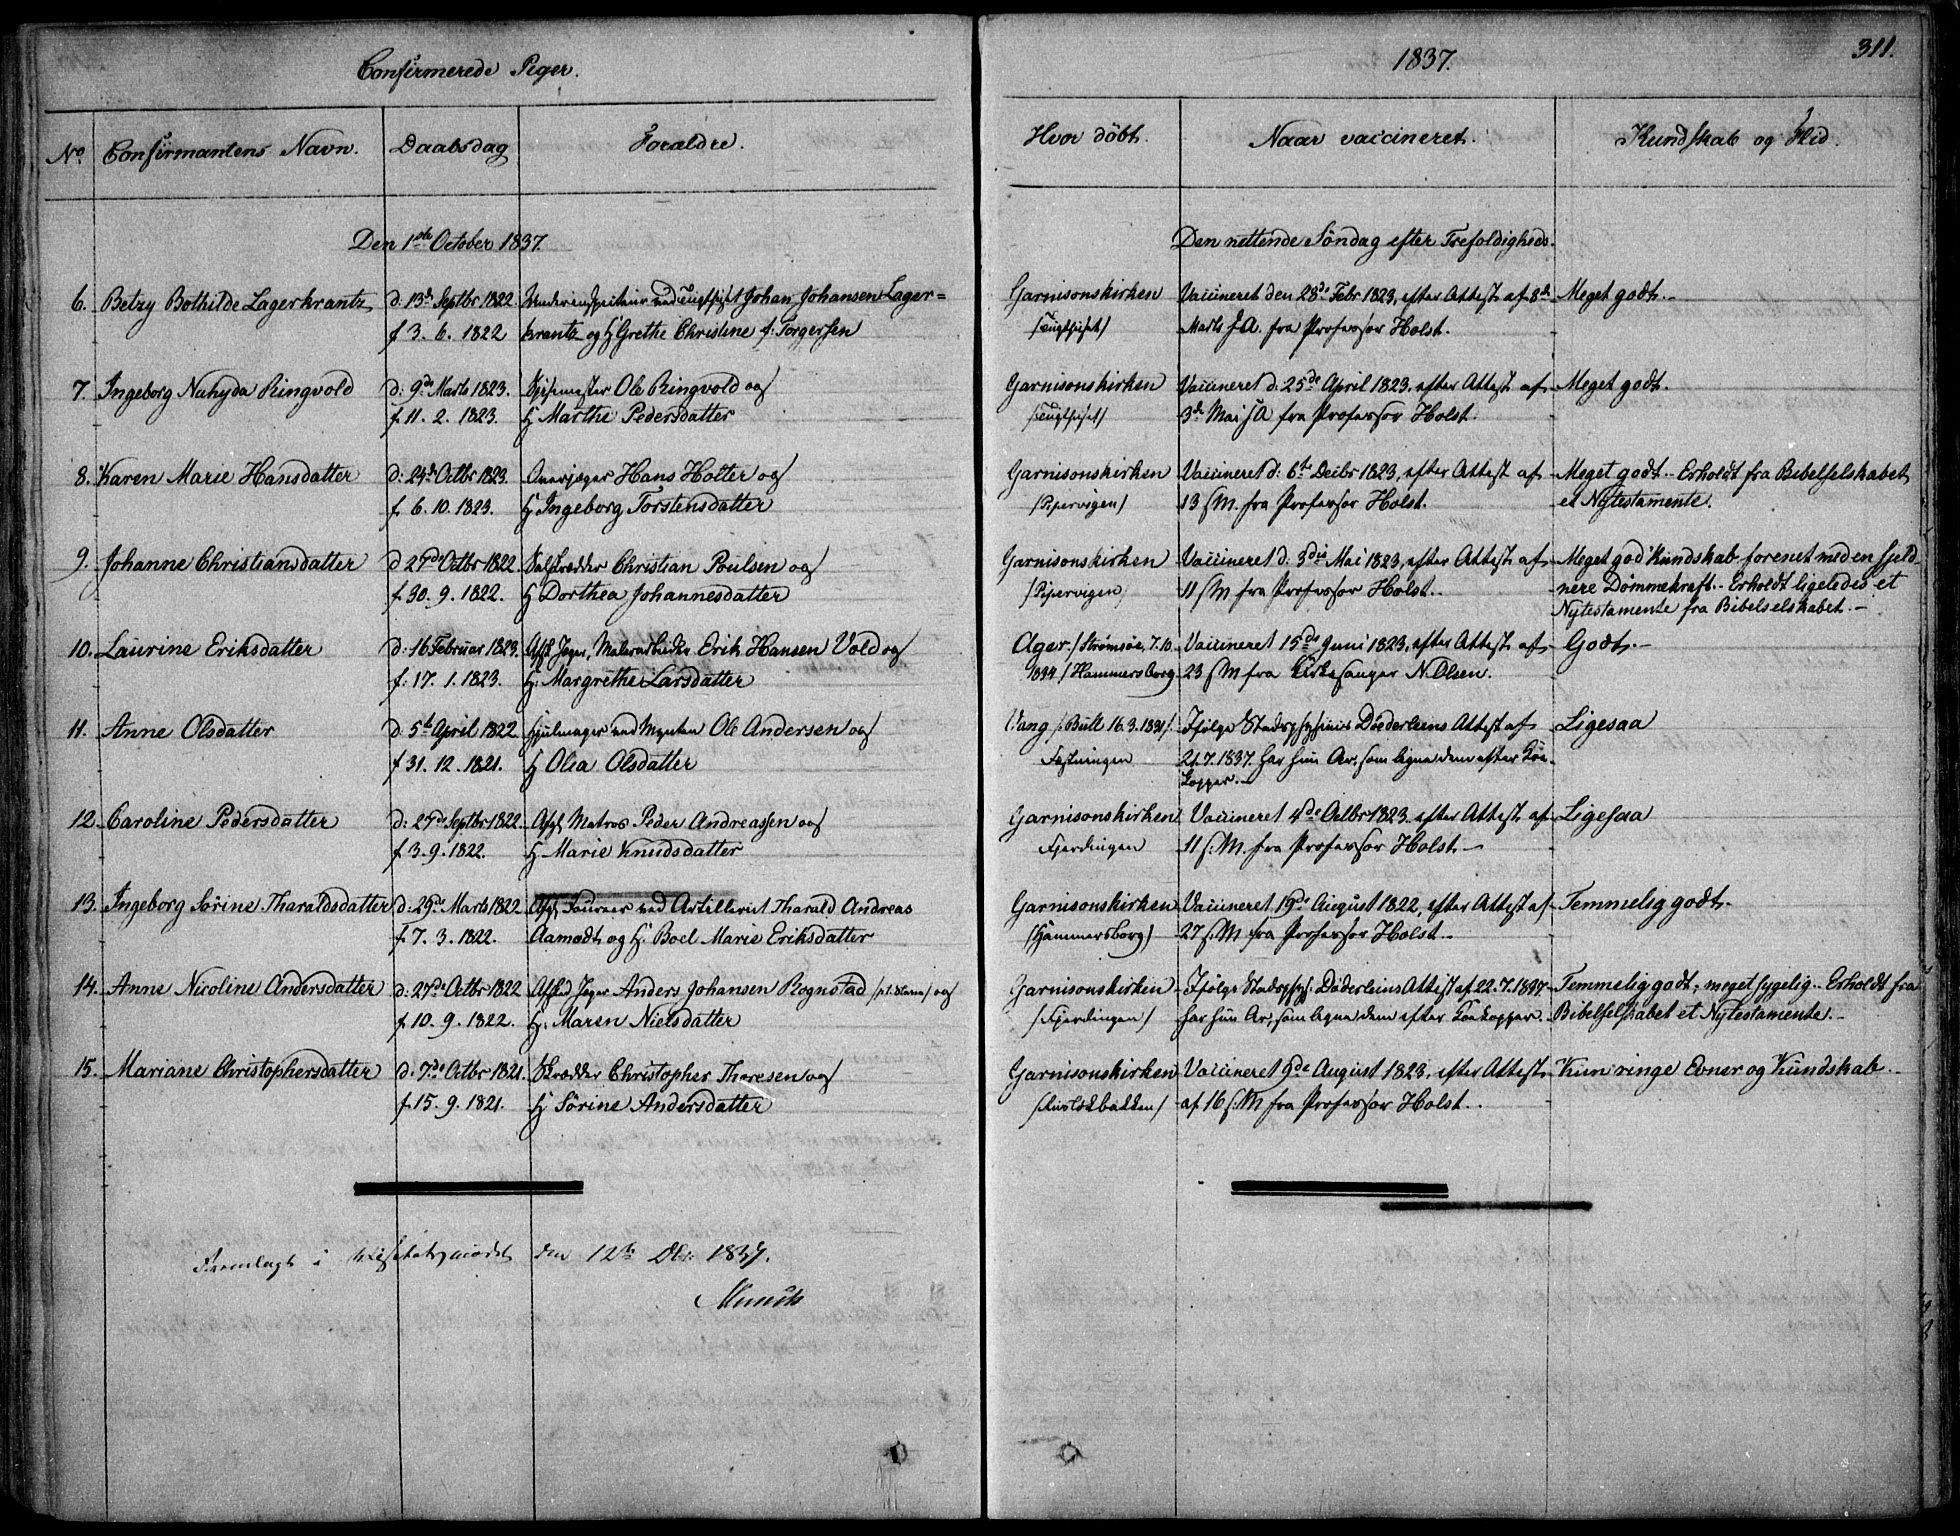 Confirmerede Piger.
No. Confirmantens Navn. Daabsdag Forældre.
Den 1ste October 1837.
6. Betzy Bothilde Lagerkrantz d: 13de Septbr 1822 Underinspecteur ved Tugthuset Johan Johansen Lager=
f 3. 6. 1822 krantz og H Grethe Christine f: Torgersen
7. Ingeborg Nahyda Ringvold d: 9de Marts 1823. Spisemester Ole Ringvold og
f. 11. 2. 1823. H Marthe Pedersdatter
8. Karen Marie Hansdatter d: 24de Octbr 1823. Overjæger Hans Holter og
f. 6. 10. 1823. H Ingeborg Torstensdatter
9. Johanne Christiansdatter d 27de Octbr 1822. Christian Poulsen og
f. 30. 9. 1822. H Dorthea Johannesdatter
10. Laurine Eriksdatter d: 16 Februar 1823. Afsk Jæger, Malerarbeider Erik Hansen Vold og
f: 17. 1. 1823. H: Margrethe Larsdatter
11. Anne Olsdatter d 5te April 1822 Hjulmager ved Mynten Ole Andersen og
f 31. 12. 1821. H Olea Olsdatter
12. Caroline Pedersdatter d: 29de Septbr 1822. Matros Peder Andreassen og
f 3. 9. 1822. H. Marie Knudsdatter
13. Ingeborg Sørine Tharaldsdatter d: 29de Marts 1822 Foureer ved Artilleriet Tharald Andreas
f. 7. 3. 1822. Aamodt og H: Boel Marie Eriksdatter
14. Anne Nicoline Andersdatter d: 27de Octbr 1822 Afsked Jæger Anders Johansen Rognstad og
f. 10. 9. 1822. H: Maren Nielsdatter
15. Mariane Christophersdatter d: 7de Octbr 1821. Skrædder Christopher Thoresen og
f. 15. 9. 1821. H Sørine Andersdatter
Fremlagt i den 12te Dbr: 1837.
Munch
1837. 311.
Hvor döbt. Naar vaccineret. Kundskab og Flid.
Den nittende Söndag efter Trefoldigheds.
Garnisonskirken Vaccineret den 28de Febr 1823, efter Attest af 8de Meget godt.-
/Tugthuset/ Marts s A. fra Professor Holst.
Garnisonskirken Vaccineret d: 25de April 1823, efter Attest af Meget godt.
/Tugthuset/ 3de Mai s A fra Professor Holst.
Garnisonskirken Vaccineret d: 6te Decbr 1823, efter Attest af Meget godt.- Erholdt fra Bibelselskabet
/Pipervigen/ 13 s. M. fra Professor Holst. et Nytestamente.
Garnisonskirken Vaccineret d. 3die Mai 1823, efter Attest af Meget god Kundskab forenet med en sjeld
/Pipervigen/ 11 s M fra Professor Holst.- nere Dömmekraft.- Erholdt ligeledes et
Nytestamente fra Bibelselskabet.-
Ager. /Strømsöe, 7. 10. Vaccineret 15de Juni 1823, efter Attest af Godt.-
1834 /Hammersborg 23 s M fra Kirkesanger N. Olsen.
Vang /Bull 16. 3. 1831/. Ifölge Stadsphysicus Döderleins Attest af Ligesaa
Fæstningen 21. 7. 1837. har hun Ar, som ligne dem efter Koe-
kopper.-
Garnisonskirken Vaccineret 4de Octbr 1823. efter Attest af Ligesaa
Fjerdingen 11 s. M. fra Professor Holst.-
Garnisonskirken Vaccineret 19de August 1822, efter Attest af Temmelig godt.
/Hammersborg/ 27 s. M fra Professor Holst.-
Garnisonskirken Ifölge Stadsphys: Döderleins Attest af 22. 7. 1837. Temmelig godt, meget sygelig.- Erholdt fra
/Fjerdingen/ har hun Ar, som ligne dem efter Koekopper. Bibelselskabet et Nytestamente.-
Garnisonskirken Vaccineret 9de August 1823, efter Attest Kun ringe Evner og Kundskab.-
af 16 s. M fra Professor Holst.